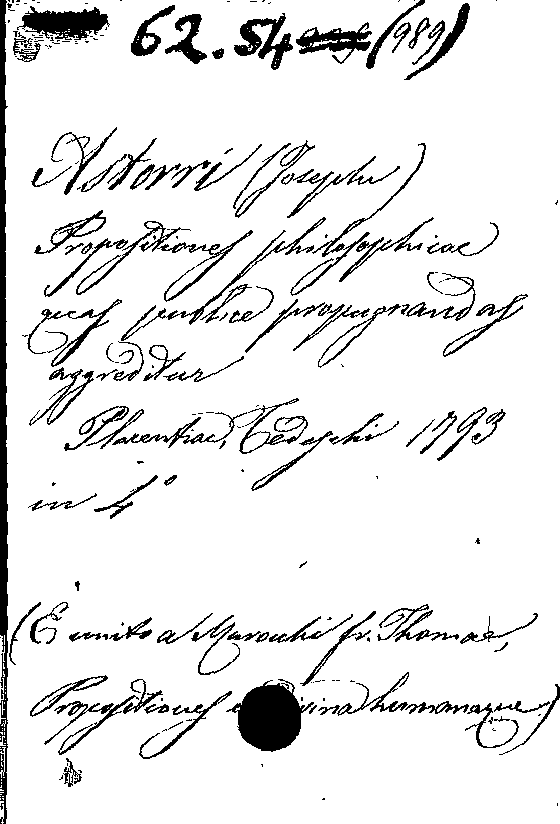 62.54 (989)
Astorri (Joseph)
Propositiones philosophicae
quas publice propugnandas
aggreditur
Placentiae, Tedeschi 1793
in 4°
(È unito a fr. Thomae,
Propositiones humanaque)